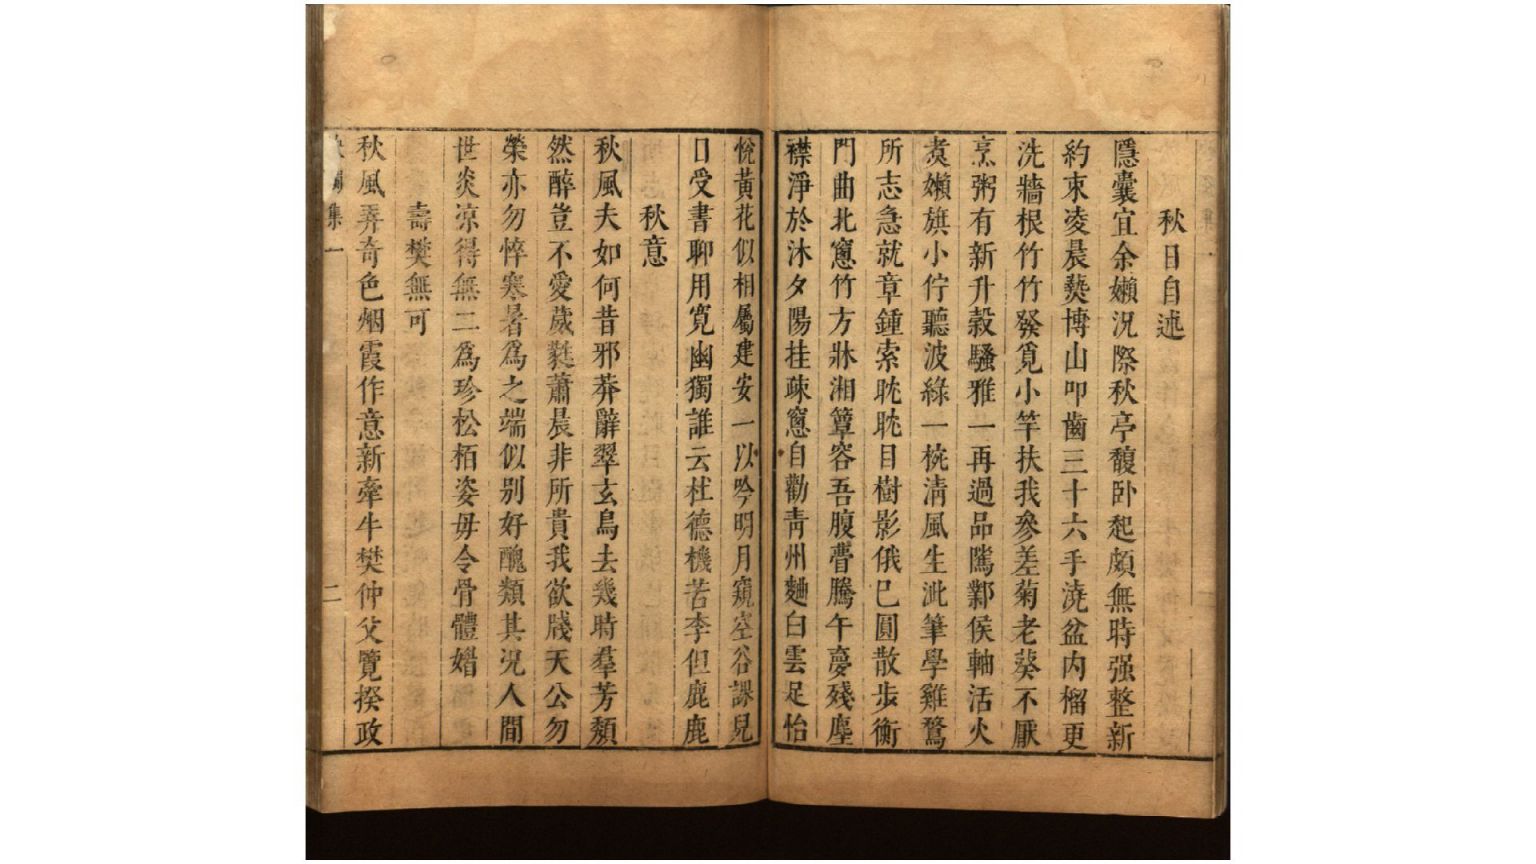 秋日自述
隱囊宜余嬾況際秋亭馥卧起頗無時强整新
約束凌晨爇博山叩齒三十六手澆盆内橊更
洗牆根竹竹發覓小竿扶我參差菊老葵不厭
烹粥有新升穀騷雅一再過品隲鄴侯軸活火
煮嬾旗小佇聽波綠一椀淸風生泚筆學雞鶩
所志急就章鍾索眈眈目樹影俄已圓散步衡
門曲北窻竹方牀湘簟容吾腹瞢騰午夢殘塵
襟淨於沐夕陽挂疎窻自勸靑州麯白雲足怡
悅黃花似相屬建安一以吟明月窺空谷課兒
日受書聊用寬幽獨誰云杜德機苦李但鹿鹿
秋意
秋風夫如何昔邪莽辭翠玄鳥去幾時羣芳頽
然醉豈不愛葳蕤蕭晨非所貴我欲牋天公勿
榮亦勿悴寒暑爲之端似别好醜類其況人間
世炎凉得無二爲珍松栢姿毋令骨體媚
壽樊無可
秋風弄奇色烟霞作意新牽牛樊仲父覽揆政
集一
二